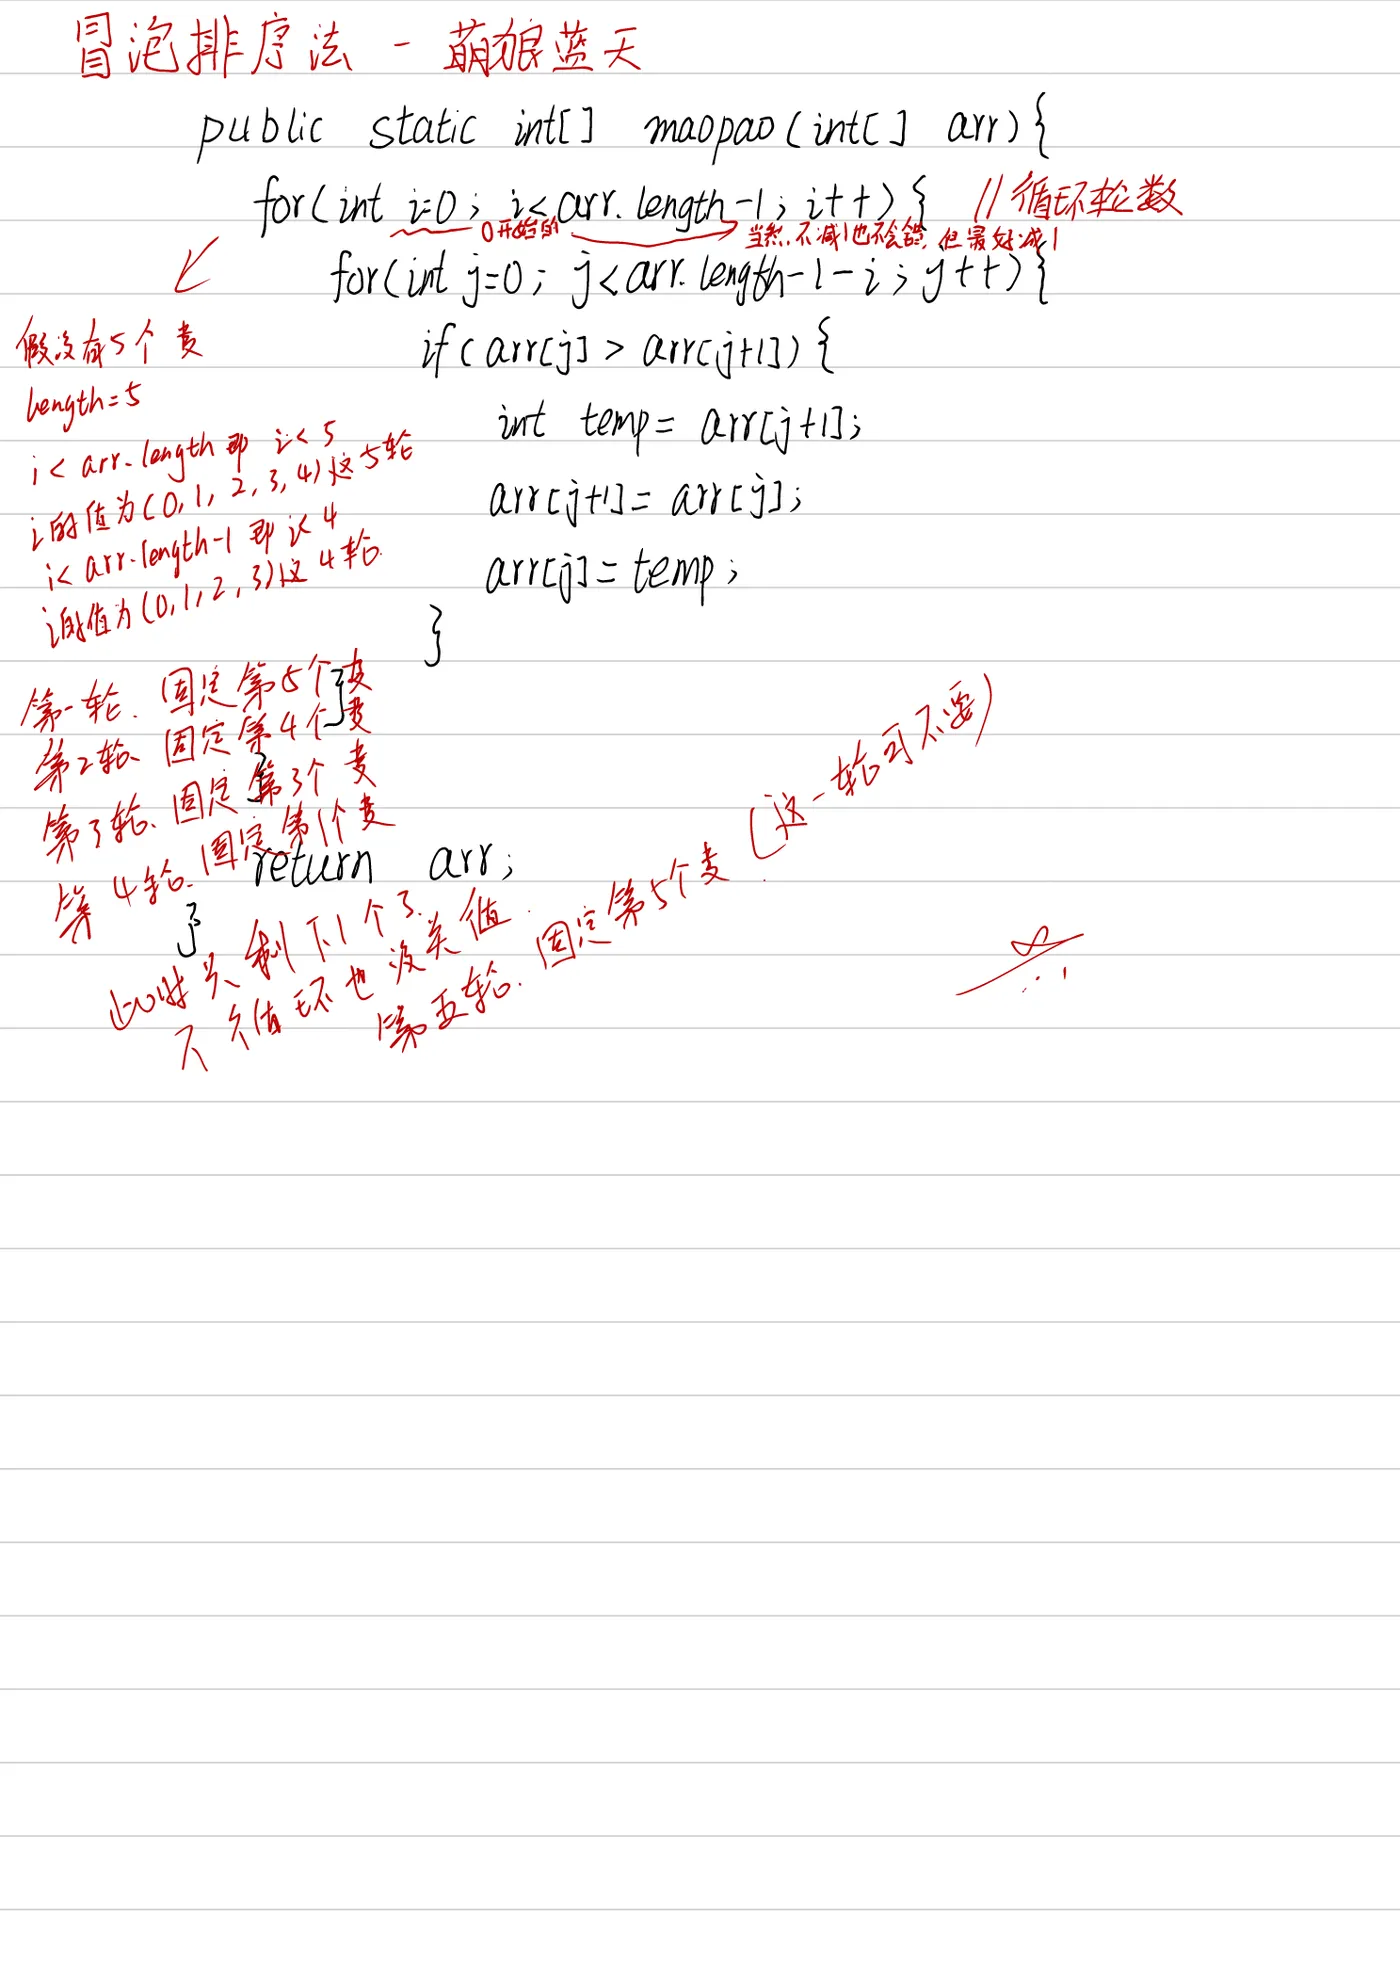 冒泡排序法 - 萌狼蓝天
public static int[] maopao(int[] arr){
for(int i=0; i<arr.length-1; i++){ //循环轮数
0开始的 当然,不减1也不会错,但最好减1
for(int j=0; j<arr.length-1-i; j++){
if(arr[j]>arr[j+1]){
int temp= arr[j+1];
arr[j+1]= arr[j];
arr[j]=temp;
}
}
}
return arr;
}
假设有5个变
length=5
i<arr.length即 i<5
i的值为(0,1,2,3,4)这5轮
i<arr.length-1即i<4
i的值为(0,1,2,3)这4轮
第一轮、固定第5个变
第2轮、固定第4个变
第3轮、固定第3个变
第4轮、固定第1个变
此时只剩下1个了.
不循环也没关值.
第五轮、固定第5个变(这一轮可不要)